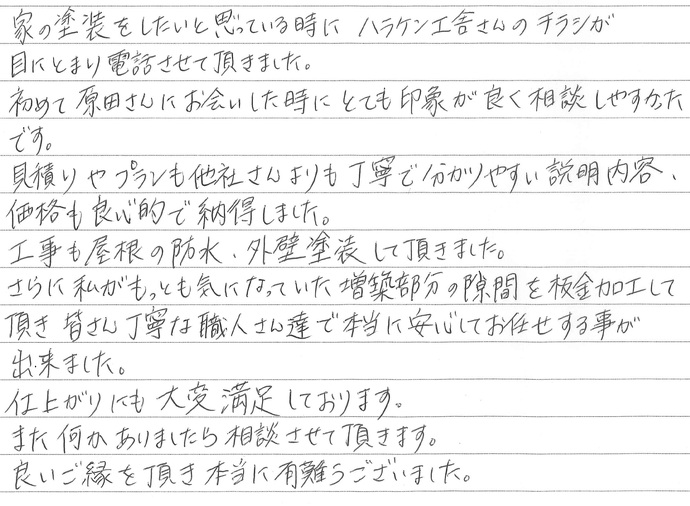 家の塗装をしたいと思っている時に ハラケン工舎さんのチラシが
目にとまり電話させて頂きました。
初めて原田さんにお会いした時にとても印象が良く相談しやすかった
です。
見積りやプランも他社さんよりも丁寧で分かりやすい説明内容、
価格も良心的で納得しました。
工事も屋根の防水、外壁塗装して頂きました。
さらに私がもっとも気になっていた増築部分の隙間を板金加工して
頂き皆さん丁寧な職人さん達で本当に安心してお任せする事が
出来ました。
仕上がりにも大変満足しております。
また何かありましたら相談させて頂きます。
良いご縁を頂き本当に有難うございました。